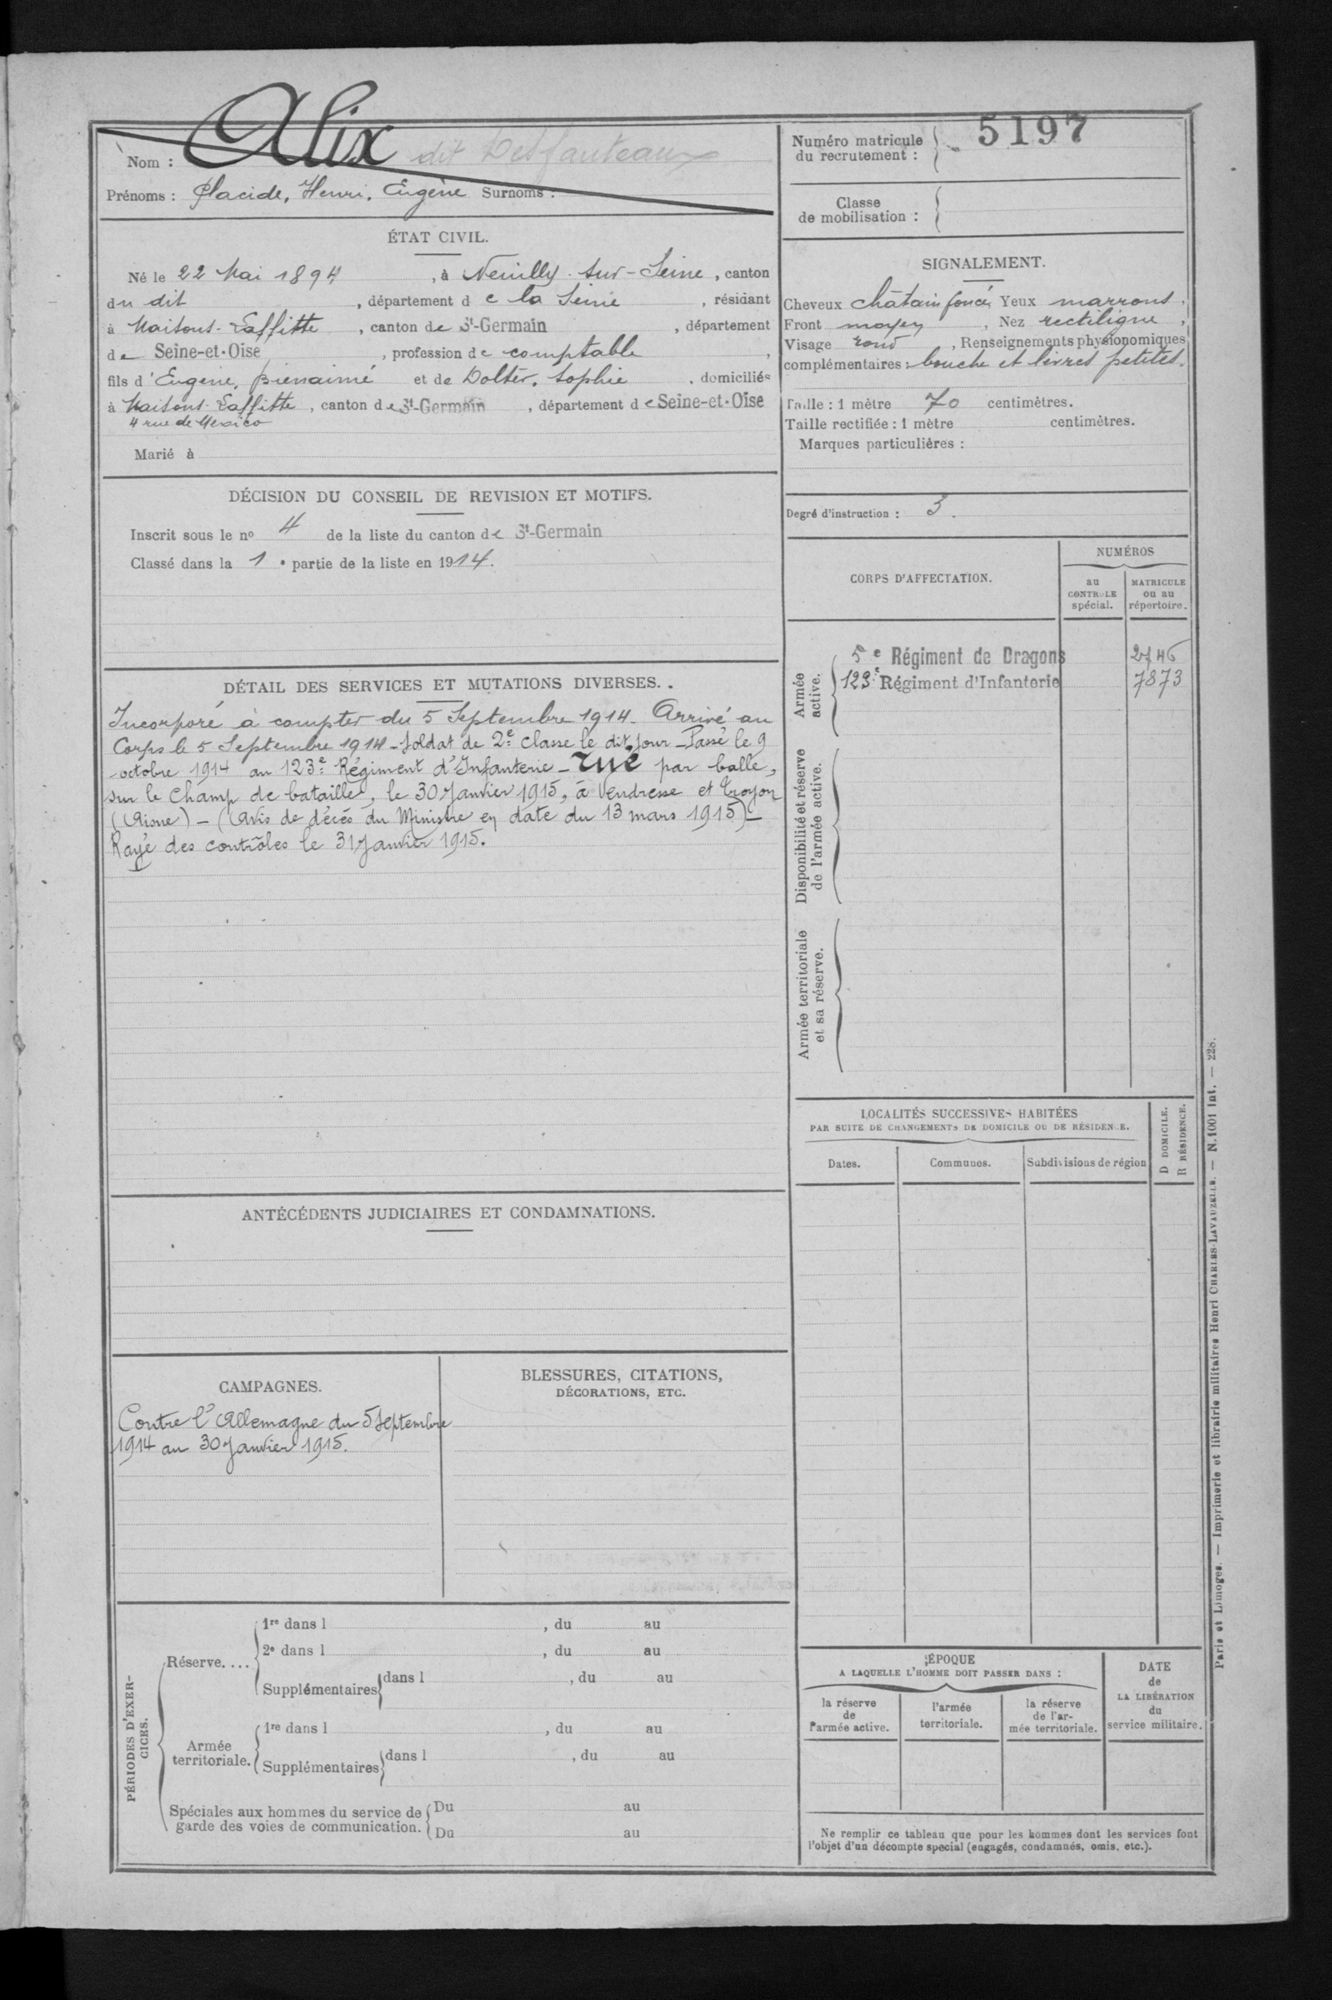 Nom : Alix dit Desfauteaux
Prénoms : Placide, Henri, Eugène Surnoms :
ÉTAT CIVIL.
Né le 22 Mai 1894, à Neuilly-sur-Seine, canton
du dit, département de la Seine, résidant
à Maisons-Laffitte, canton de St-Germain, département
de Seine-et-Oise, profession de comptable,
fils d'Eugène, Bienaimé et de Dolter, Sophie, domiciliés
à Maisons-Laffitte, canton de St-Germain, département de Seine-et-Oise
4 rue de Mexico
Marié à
DÉCISION DU CONSEIL DE REVISION ET MOTIFS.
Inscrit sous le no 4 de la liste du canton de St-Germain
Classé dans la 1e partie de la liste en 1914.
DÉTAIL DES SERVICES ET MUTATIONS DIVERSES.
Incorporé à compter du 5 Septembre 1914. Arrivé au
Corps le 5 Septembre 1914 - Soldat de 2e classe le dit jour - Passé le 9
octobre 1914 au 123e Régiment d'Infanterie - Tué par balle,
sur le champ de bataille, le 30 Janvier 1915, à Vendresse et Troyon
(Aisne) - (Avis de décès du Ministre en date du 13 mars 1915) -
Rayé des contrôles le 31 Janvier 1915.
ANTÉCÉDENTS JUDICIAIRES ET CONDAMNATIONS.
CAMPAGNES.
Contre l'Allemagne du 5 Septembre
1914 au 30 Janvier 1915.
BLESSURES, CITATIONS,
DÉCORATIONS, ETC.
PÉRIODES D'EXER-
CICES.
Réserve....
1re dans l , du au
2e dans l , du au
Supplémentaires dans l , du au
Armée
territoriale.
1re dans l , du au
Supplémentaires dans l , du au
Spéciales aux hommes du service de
garde des voies de communication.
Du au
Du au
Numéro matricule
du recrutement : 5197
Classe
de mobilisation :
SIGNALEMENT.
Cheveux châtain foncé, Yeux marrons,
Front moyen, Nez rectiligne,
Visage rond, Renseignements physionomiques
complémentaires : bouche et lèvres petites.
Taille : 1 mètre 70 centimètres.
Taille rectifiée : 1 mètre centimètres.
Marques particulières :
Degré d'instruction : 3.
CORPS D'AFFECTATION.
NUMÉROS
au
CONTROLE
spécial.
MATRICULE
ou au
répertoire.
Armée
active.
5e Régiment de Dragons
123e Régiment d'Infanterie 7873
Disponibilité et réserve
de l'armée active.
Armée territoriale
et sa réserve.
LOCALITÉS SUCCESSIVES HABITÉES
PAR SUITE DE CHANGEMENTS DE DOMICILE OU DE RÉSIDENCE.
Dates.
Communes.
Subdivisions de région
D DOMICILE.
R RÉSIDENCE.
ÉPOQUE
A LAQUELLE L'HOMME DOIT PASSER DANS :
la réserve
de
l'armée active.
l'armée
territoriale.
la réserve
de l'ar-
mée territoriale.
DATE
de
LA LIBÉRATION
du
service militaire.
Ne remplir ce tableau que pour les hommes dont les services font
l'objet d'un décompte special (engagés, condamnés, omis, etc.).
Paris et Limoges. — Imprimerie et librairie militaires Henri CHARLES-LAVAUZELLE. — N. 1001 Int. — 228.